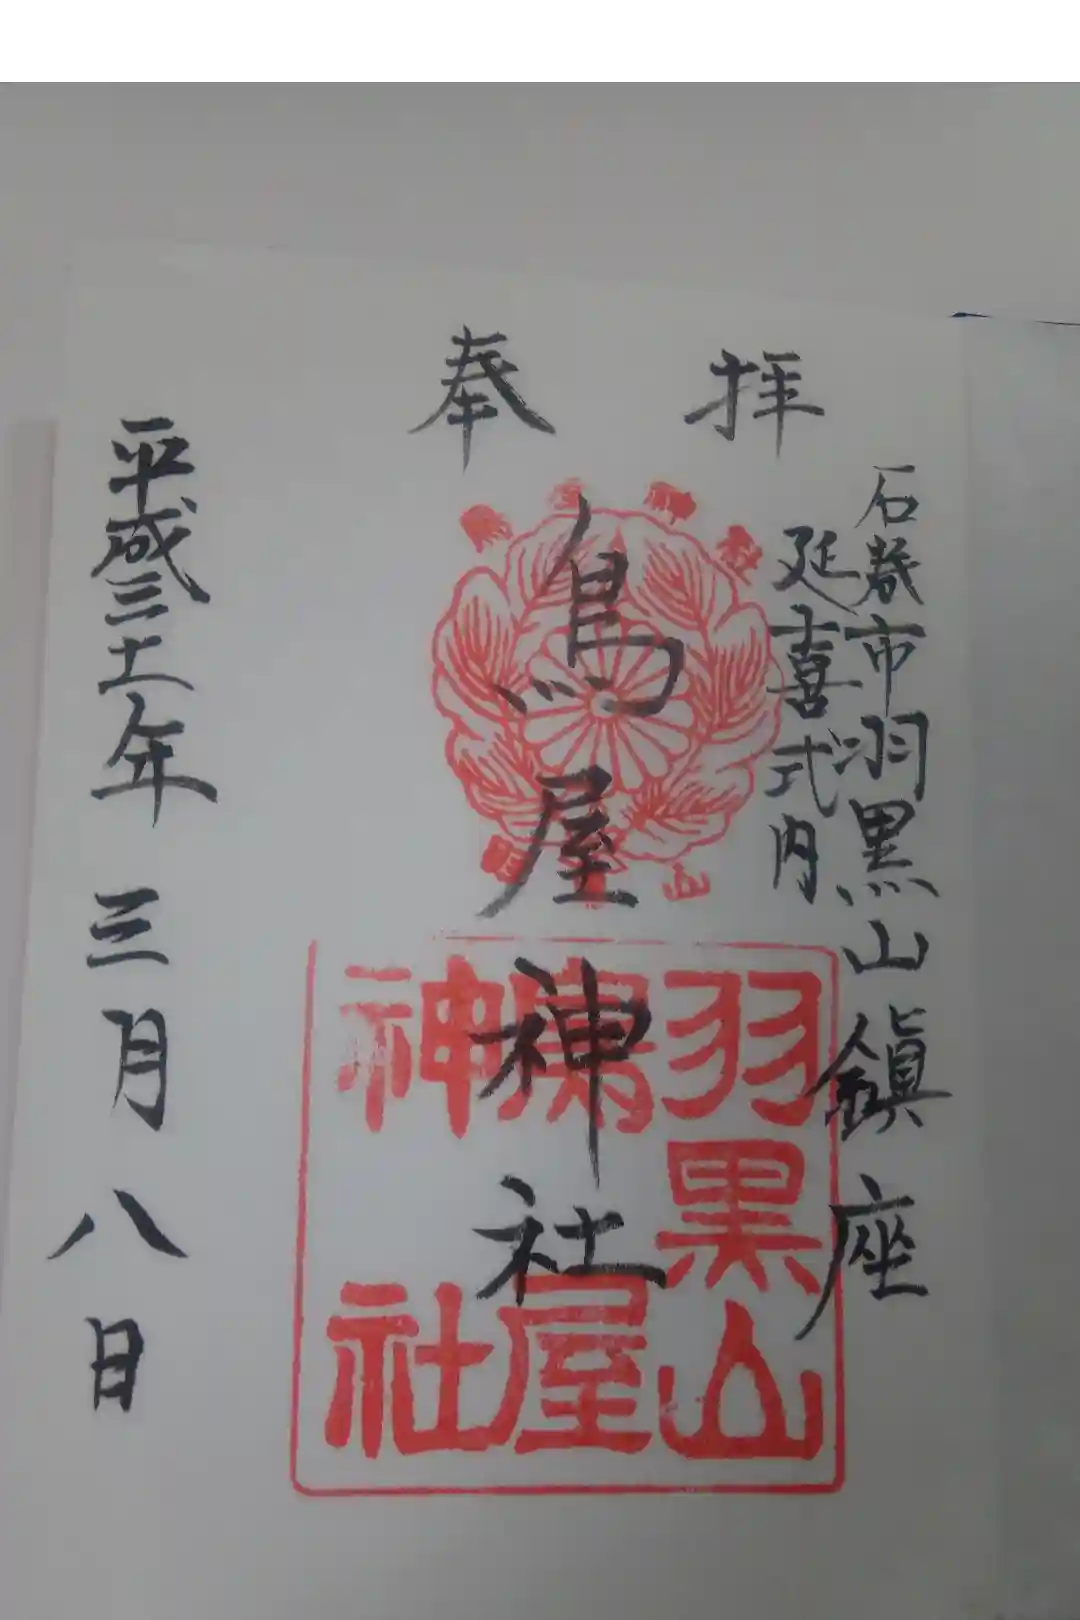 奉拝
石巻市羽黒山鎭座
延喜式内
鳥屋神社
平成三十一年三月八日
羽黒山
鳥屋
神社